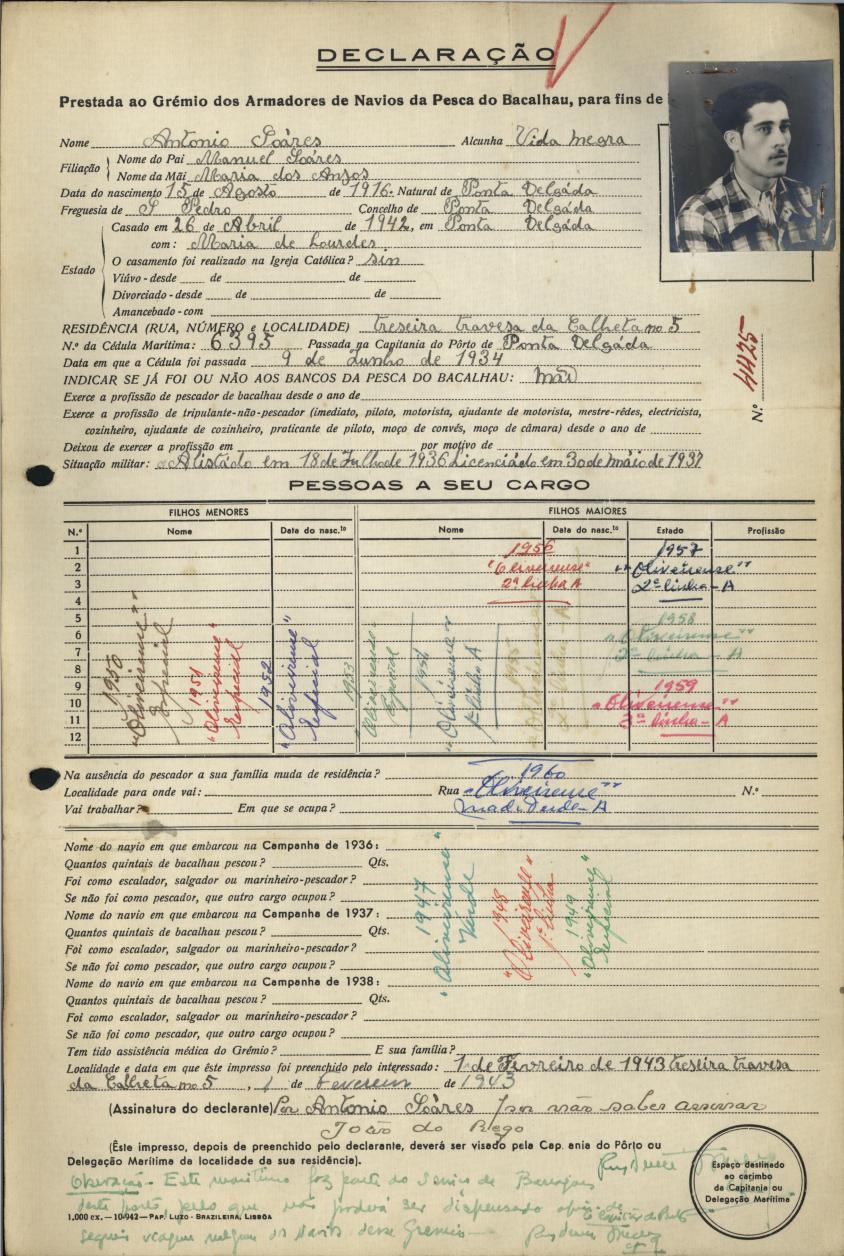 DECLARAÇÃO
Prestada ao Grémio dos Armadores de Navios da Pesca do Bacalhau, para fins de
Nome Antonio Soáres Alcunha Vida Negra
Filiação Nome do Pai Manuel Soáres
Nome da Mãi Maria dos Anjos
Data do nascimento 15 de Agosto de 1916. Natural de Ponta Delgáda
Freguesia de S Pedro Concelho de Ponta Delgáda
Casado em 26 de Abril de 1942, em Ponta Delgáda
com: Maria de Lourdes.
Estado O casamento foi realizado na Igreja Católica? sin
Viúvo - desde de de
Divorciado - desde de de
Amancebado - com
RESIDÊNCIA (RUA, NÚMERO e LOCALIDADE) treseira travesa da Calheta no 5
N.º da Cédula Marítima: 6395 Passada na Capitania do Pôrto de Ponta Delgáda
Data em que a Cédula foi passada 9 de Junho de 1934
INDICAR SE JÁ FOI OU NÃO AOS BANCOS DA PESCA DO BACALHAU: Não
N.º 4425
Exerce a profissão de pescador de bacalhau desde o ano de
Exerce a profissão de tripulante-não-pescador (imediato, piloto, motorista, ajudante de motorista, mestre-rêdes, electricista,
cozinheiro, ajudante de cozinheiro, praticante de piloto, moço de convés, moço de câmara) desde o ano de
Deixou de exercer a profissão em por motivo de
Situação militar: Alistádo em 18 de Julho de 1936 Licenciádo em 30 de Máio de 1937
PESSOAS A SEU CARGO
FILHOS MENORES FILHOS MAIORES
N.º Nome Data do nasc.to Nome Data do nasc.to Estado Profissão
1
2
3
4
5
6
7
8
9
10
11
12
1956
"Oliveirense"
2ª linha A
1957
"Oliveirense"
2ª linha - A
1958
"Oliveirense"
2ª linha - A
1959
"Oliveirense"
2ª linha - A
1950
"Oliveirense"
Especial
1951
"Oliveirense"
Especial
1952
"Oliveirense"
Especial
1953
Oliveirense
Especial
1954
"Oliveirense"
1ª linha A
1955
"Oliveirense"
2ª linha - A
Na ausência do pescador a sua família muda de residência?
Localidade para onde vai: Rua N.º
Vai trabalhar? Em que se ocupa?
1960
"Oliveirense"
Verde - A
Nome do navio em que embarcou na Campanha de 1936:
Quantos quintais de bacalhau pescou? Qts.
Foi como escalador, salgador ou marinheiro-pescador?
Se não foi como pescador, que outro cargo ocupou?
Nome do navio em que embarcou na Campanha de 1937:
Quantos quintais de bacalhau pescou? Qts.
Foi como escalador, salgador ou marinheiro-pescador?
Se não foi como pescador, que outro cargo ocupou?
Nome do navio em que embarcou na Campanha de 1938:
Quantos quintais de bacalhau pescou? Qts.
Foi como escalador, salgador ou marinheiro-pescador?
Se não foi como pescador, que outro cargo ocupou?
1947
"Oliveirense"
Verde
1948
"Oliveirense"
1ª linha
1949
"Oliveirense"
Especial
Tem tido assistência médica do Grémio? E sua família?
Localidade e data em que êste impresso foi preenchido pelo interessado: 1 de Fevreiro de 1943 treseira travesa
da Calheta no 5, 1 de Fevereiro de 1943
(Assinatura do declarante) Por Antonio Soáres por não saber assinar
João do Rego
(Êste impresso, depois de preenchido pelo declarante, deverá ser visado pela Cap. ania do Pôrto ou
Delegação Marítima da localidade da sua residência).
Espaço destinado
ao carimbo
da Capitania ou
Delegação Marítima
Observação - Este marítimo faz parte do Serviço de
deste porto, pelo que não poderá ser dispensado
1,000 ex. — 10-942 — PAP. LUZO - BRAZILEIRA, LISBOA
seguir viagem Navios desse Gremio -